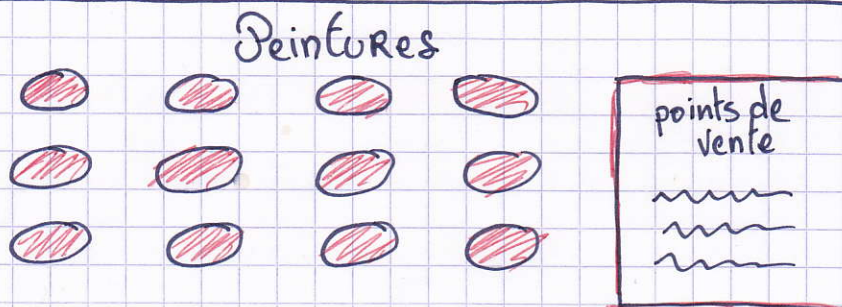 Peintures
points de
vente